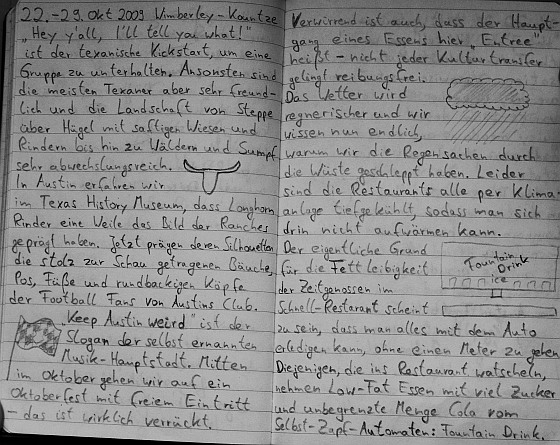 22.-29. Okt 2009 Wimberley - Kountze
„Hey y'all, I'll tell you what!"
ist der texanische Kickstart, um eine
Gruppe zu unterhalten. Ansonsten sind
die meisten Texaner aber sehr freund-
lich und die Landschaft von Steppe
über Hügel mit saftigen Wiesen und
Rindern bis hin zu Wäldern und Sumpf
sehr abwechslungsreich.
In Austin erfahren wir
im Texas History Museum, dass Longhorn
Rinder eine Weile das Bild der Ranches
geprägt haben. Jetzt prägen deren Silhouetten
die stolz zur Schau getragenen Bäuche,
Pos, Füße und rundbackigen Köpfe
der Football Fans von Austins Club.
„Keep Austin weird" ist der
Slogan der selbst ernannten
Musik-Hauptstadt. Mitten
im Oktober gehen wir auf ein
Oktoberfest mit freiem Eintritt
- das ist wirklich verrückt.
Verwirrend ist auch, dass der Haupt-
gang eines Essens hier „Entree"
heißt - nicht jeder Kulturtransfer
gelingt reibungsfrei.
Das Wetter wird
regnerischer und wir
wissen nun endlich,
warum wir die Regensachen durch
die Wüste geschleppt haben. Leider
sind die Restaurants alle per Klima-
anlage tiefgekühlt, sodass man sich
drin nicht aufwärmen kann.
Der eigentliche Grund
für die Fettleibigkeit
der Zeitgenossen im
Schnell-Restarant scheint
Fountain
Drink
ice
zu sein, dass man alles mit dem Auto
erledigen kann, ohne einen Meter zu gehen
Diejenigen, die ins Restaurant watscheln,
nehmen Low-Fat Essen mit viel Zucker
und unbegrenzte Menge Cola vom
Selbst-Zapf-Automaten: Fountain Drink.